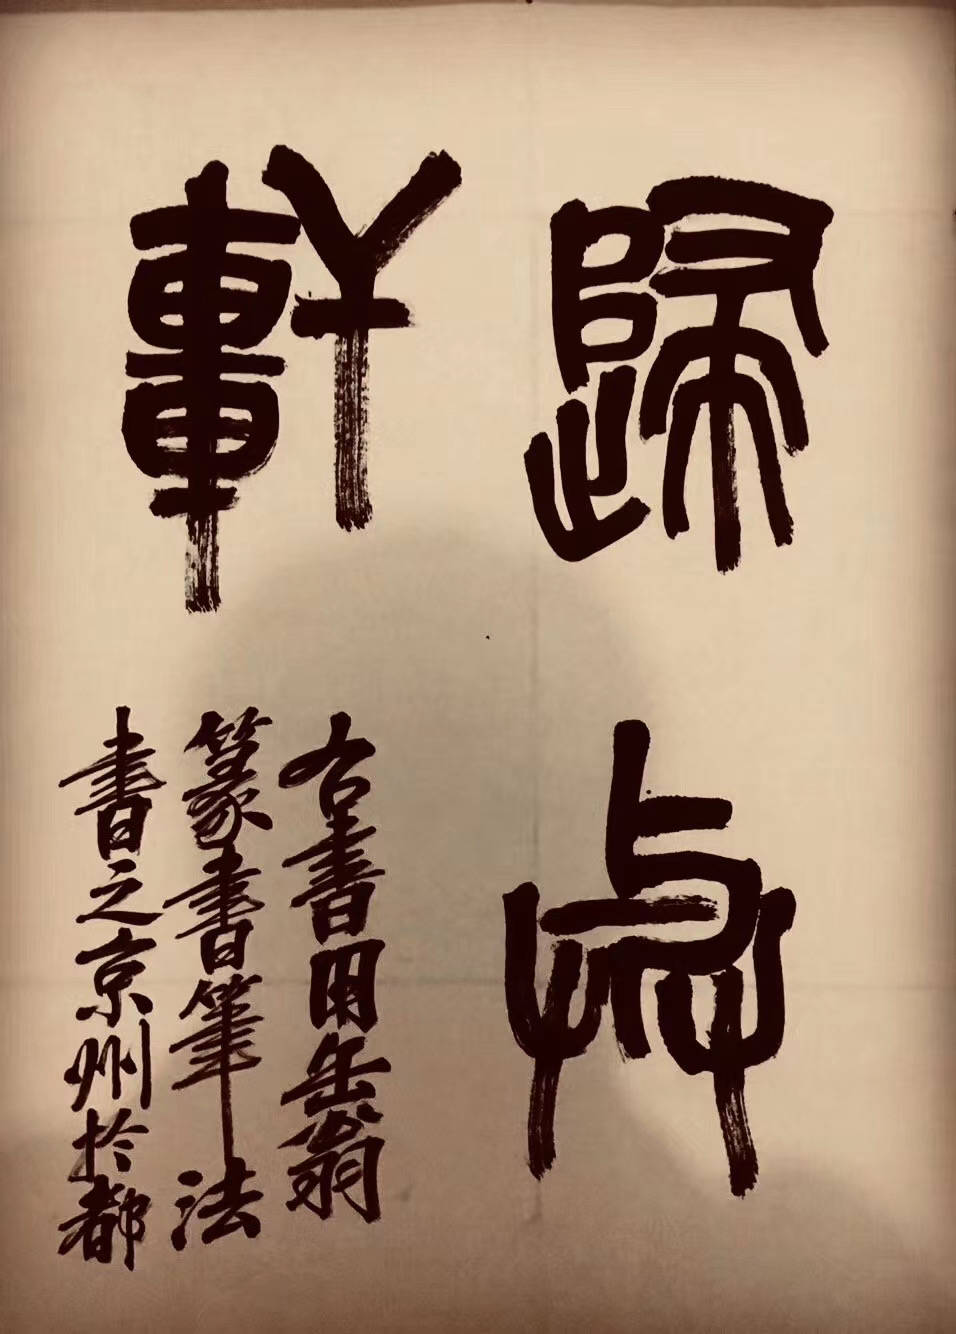 歸
軒
右書用缶翁
篆書筆法
書之京州於都